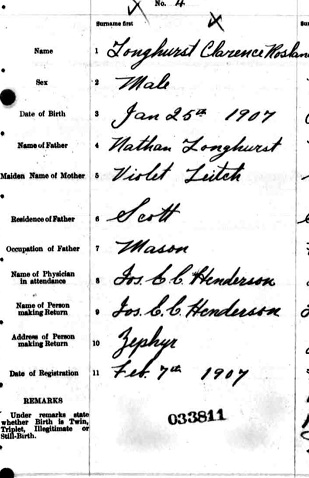 No. 4
Surname first
Name 1 Longhurst Clarence
Sex 2 Male
Date of Birth 3 Jan 25th 1907
Name of Father 4 Nathan Longhurst
Maiden Name of Mother 5 Violet Leitch
Residence of Father 6 Scott
Occupation of Father 7 Mason
Name of Physician
in attendance 8 Jos. C. C. Henderson
Name of Person
making Return 9 Jos. C. C. Henderson
Address of Person
making Return 10 Zephyr
Date of Registration 11 Feb. 7th 1907
REMARKS
Under remarks state
whether Birth is Twin,
Triplet, Illegitimate or
Still-Birth.
033811